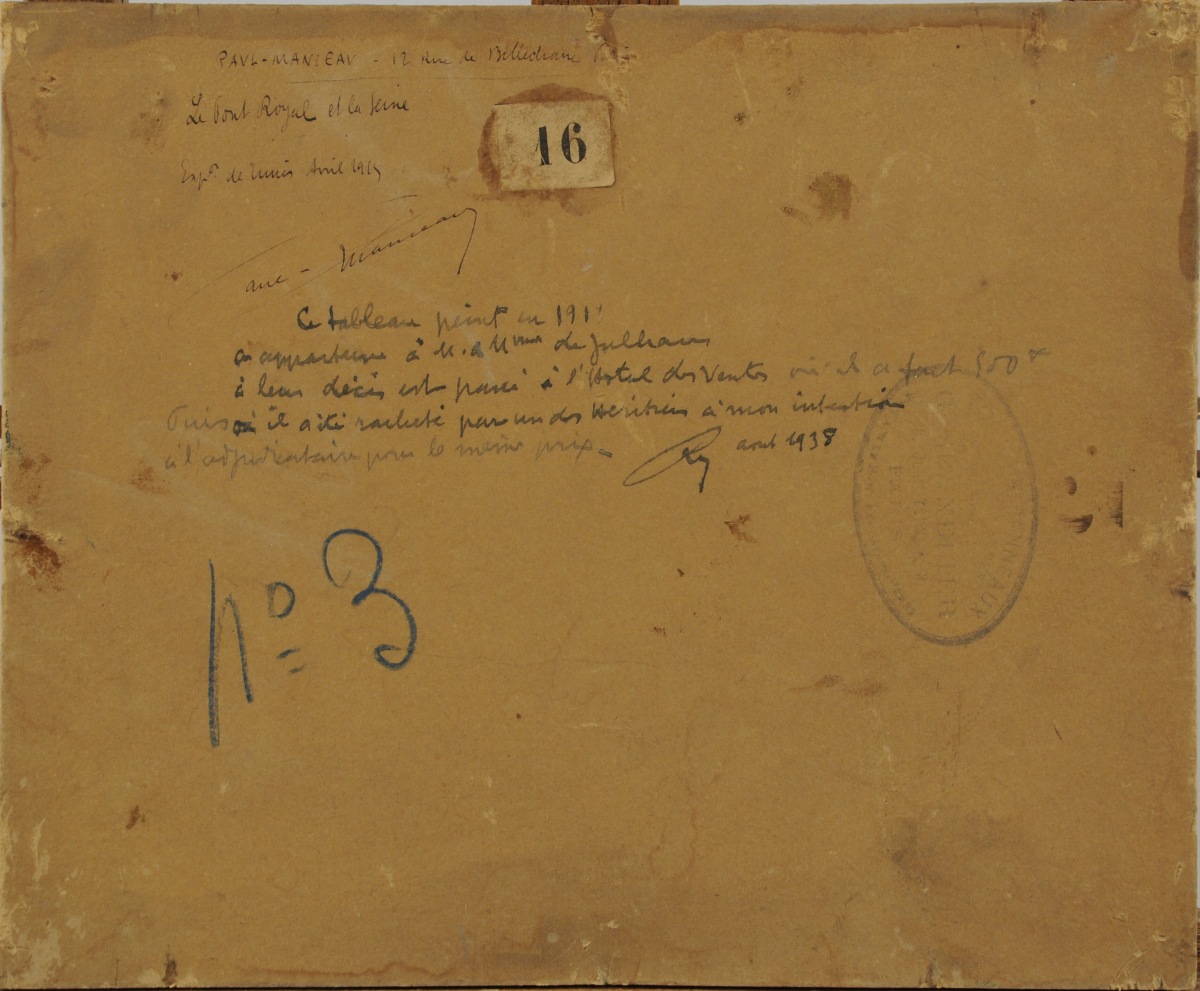 PAUL-MANCEAU - 12 Rue de Bellechasse
Le Pont Royal et la Seine
16
Expon de Tunis Avril 1915
Paul-Manceau
Ce tableau peint en 191
a appartenu à M. & Mme de
à leur décès est passé à l'Hotel des Ventes où il a fait 500
Puis il a été racheté par un des Héritiers à mon intention
à l'adjudicataire pour le même prix.
aout 1938
No 3